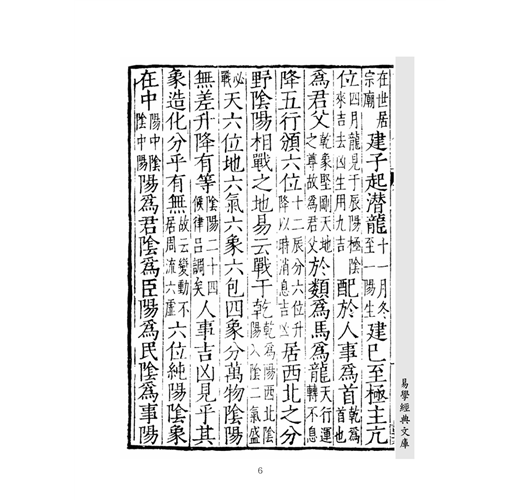 在世居宗廟建子起潛龍十一月冬至一陽生建巳至極主亢
位四月龍見于辰陽極陰來吉去凶生用九吉配於人事爲首乾爲首也
爲君父乾象堅剛天地之尊故爲君父於類爲馬爲龍天行運轉不息
降五行頒六位十二辰分六位升降以時消息吉凶居西北之分
野陰陽相戰之地易云戰于乾乾爲陽西北陰陽入陰二氣盛
必戰天六位地六氣六象六包四象分萬物陰陽
無差升降有等陰陽二十四候律呂調矣人事吉凶見乎其
象造化分乎有無故云變動不居周流六虛六位純陽陰象
在中陽中陰陰中陽陽爲君陰爲臣陽爲民陰爲事陽
易學經典文庫
6